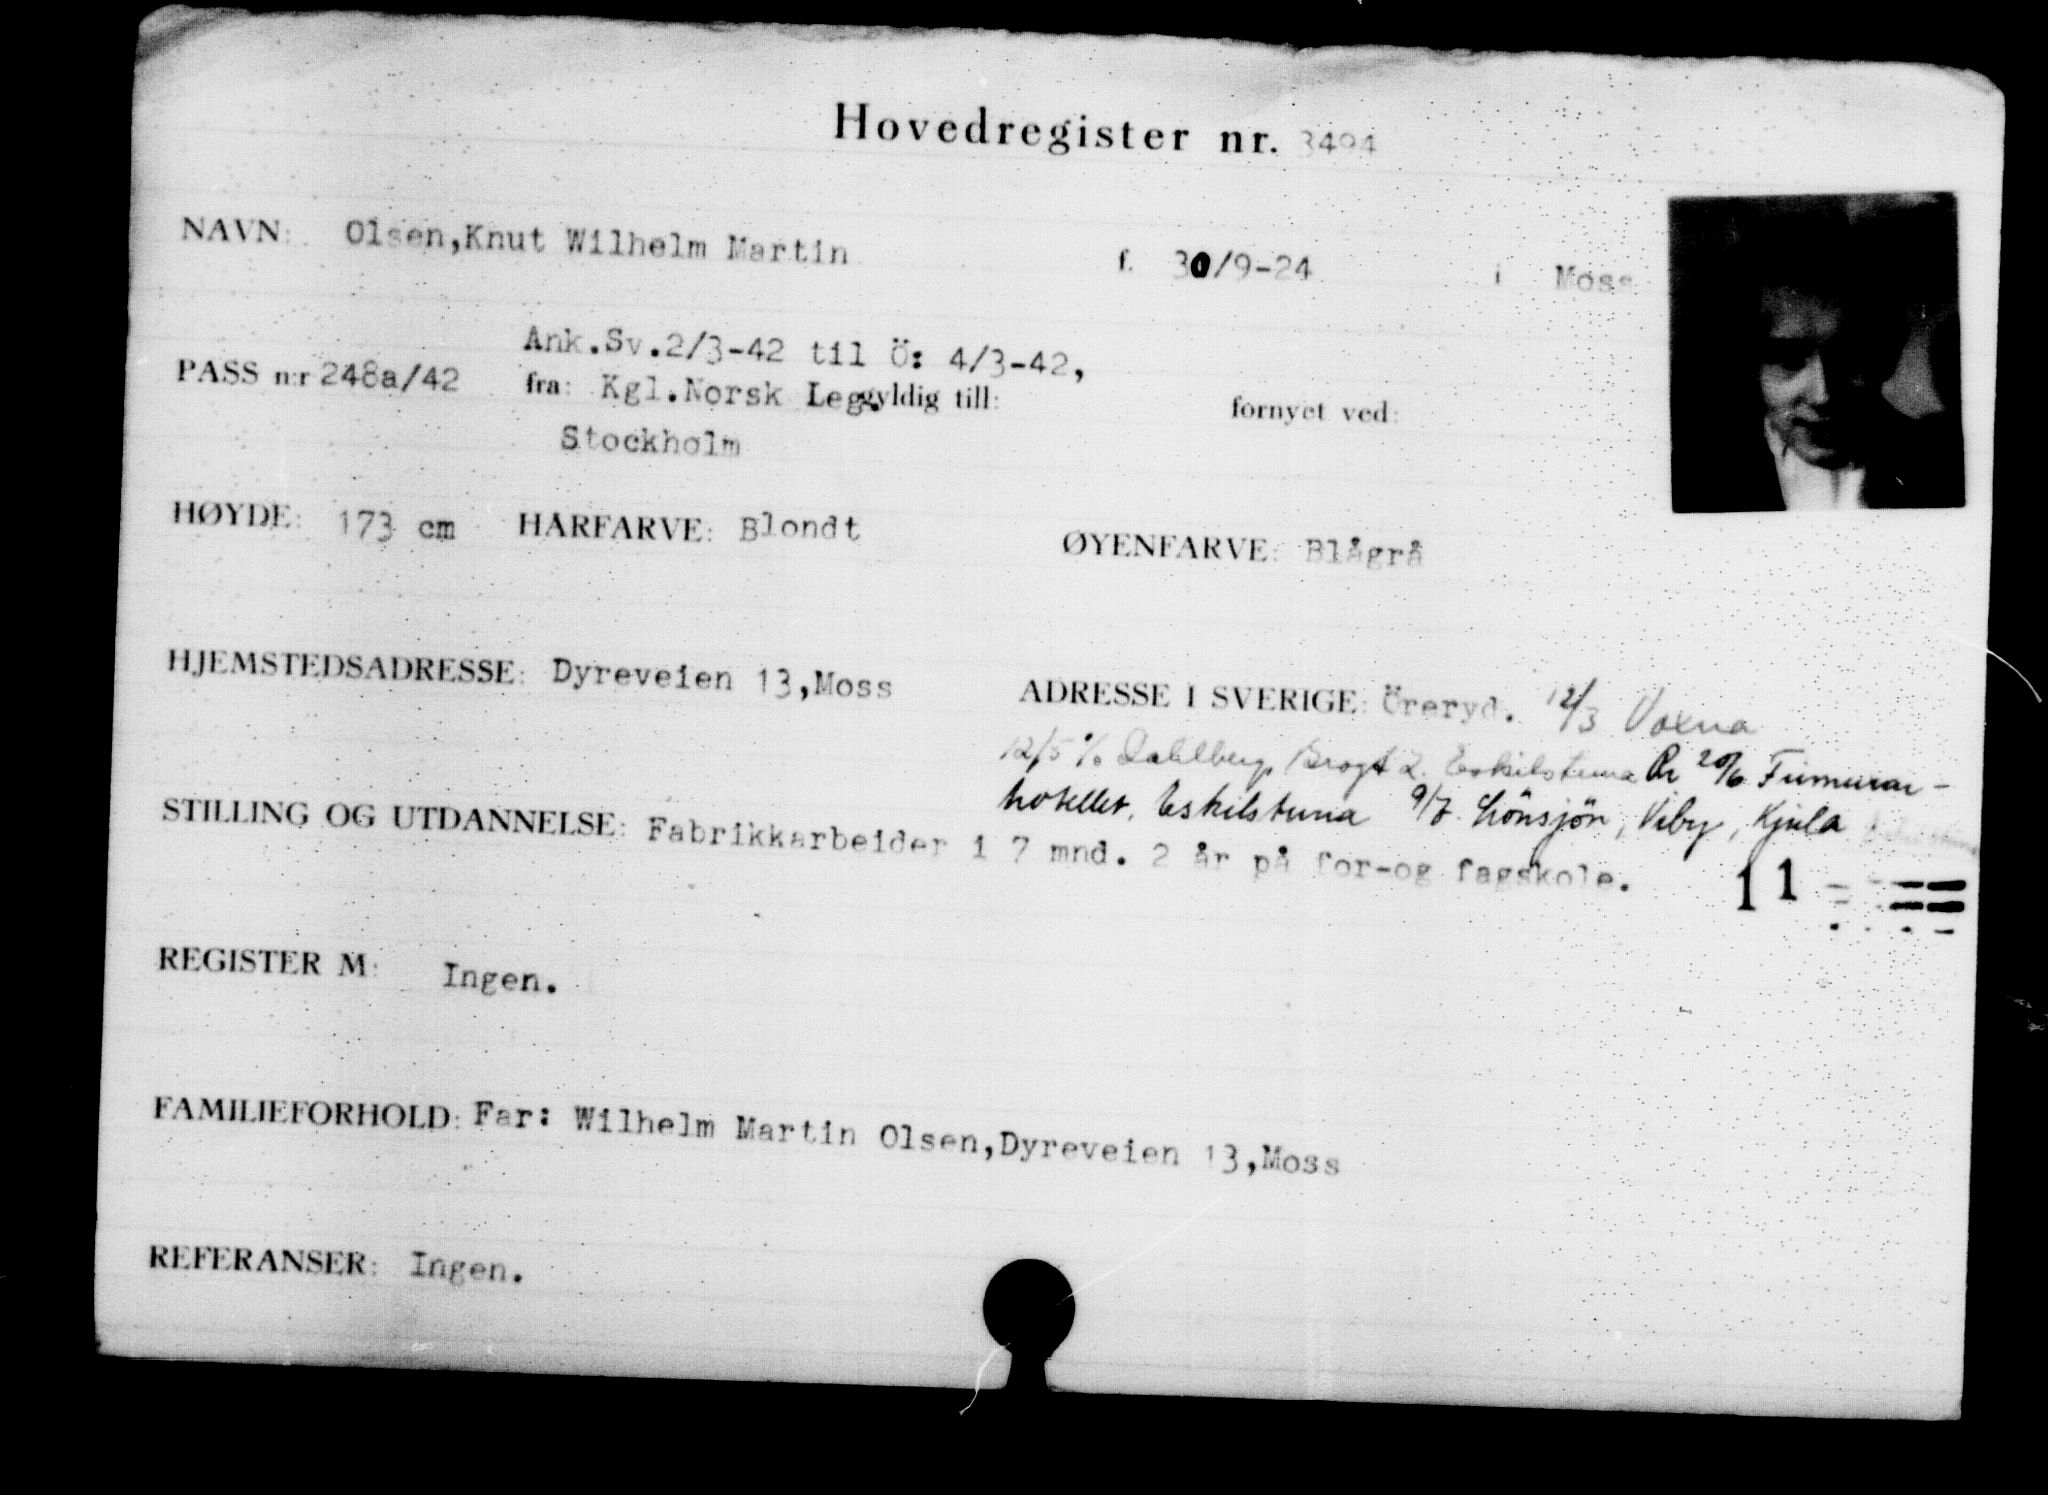 Hovedregister nr. 3494
NAVN: Olsen,Knut Wilhelm Martin f. 30/9-24 i Moss
Ank.Sv.2/3-42 til Ö: 4/3-42,
PASS n:r 248a/42 fra: Kgl.Norsk Leg. gyldig till: fornyet ved:
Stockholm
HØYDE: 173 cm HÅRFARVE: Blondt ØYENFARVE: Blågrå
HJEMSTEDSADRESSE: Dyreveien 13,Moss ADRESSE I SVERIGE: Öreryd. 12/3 Voxna
12/5 c/o Dahlberg, Brogt 2. Eskilstuna Rr 20/6 Frimurar-
hotellet, Eskilstuna 9/7 Lönsjön, Viby, Kjula
STILLING OG UTDANNELSE: Fabrikkarbeider i 7 mnd. 2 år på for-og fagskole.
11
REGISTER M: Ingen.
FAMILIEFORHOLD: Far: Wilhelm Martin Olsen,Dyreveien 13,Moss
REFERANSER: Ingen.